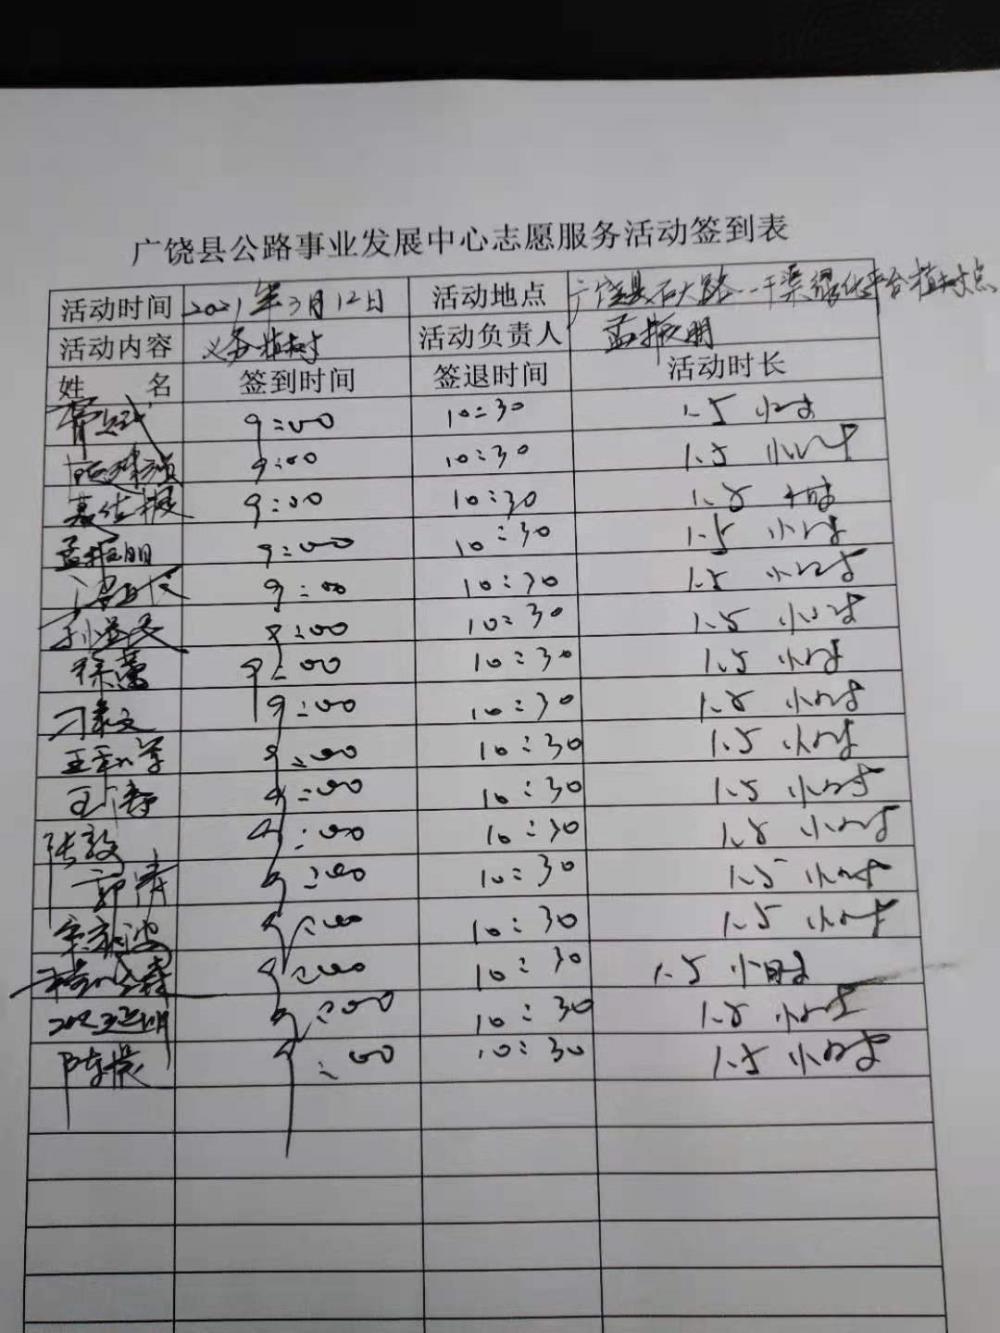 广饶县公路事业发展中心志愿服务活动签到表
活动时间 2021年3月12日 活动地点 广饶县石大路 干渠绿化平台植树点
活动内容 义务植树 活动负责人 孟振明
姓 名 签到时间 签退时间 活动时长
9:00 10:30 1.5 小时
9:00 10:30 1.5 小时
9:00 10:30 1.5 小时
孟振明 9:00 10:30 1.5 小时
9:00 10:30 1.5 小时
9:00 10:30 1.5 小时
徐蕾 9:00 10:30 1.5 小时
9:00 10:30 1.5 小时
9:00 10:30 1.5 小时
王静 9:00 10:30 1.5 小时
张毅 9:00 10:30 1.5 小时
郭涛 9:00 10:30 1.5 小时
9:00 10:30 1.5 小时
9:00 10:30 1.5 小时
9:00 10:30 1.5 小时
陈晨 9:00 10:30 1.5 小时